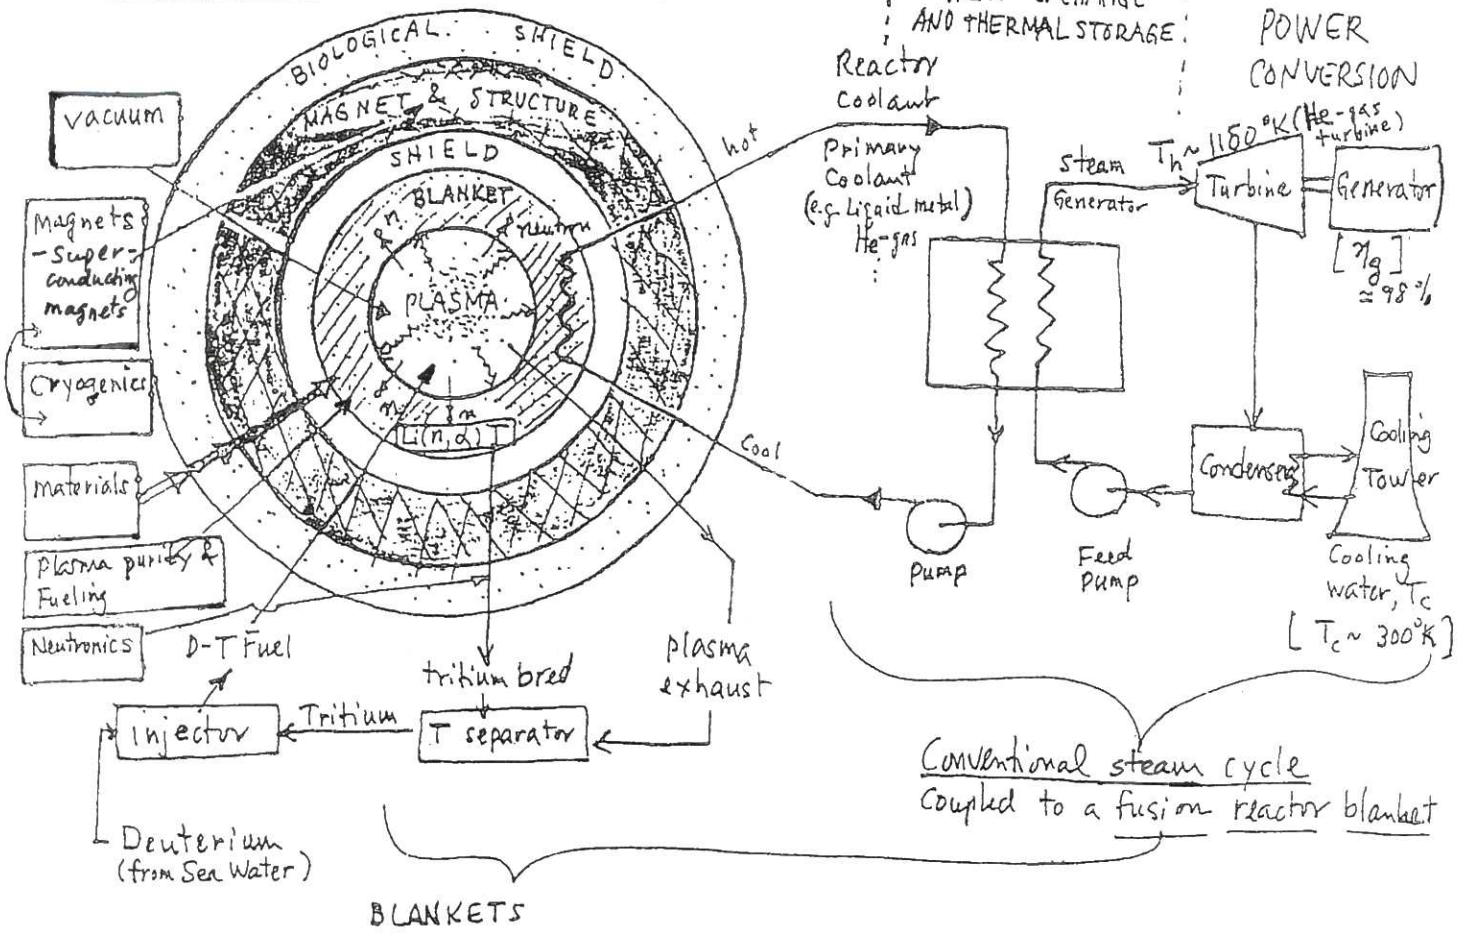 AND THERMAL STORAGE
POWER
CONVERSION
BIOLOGICAL SHIELD
MAGNET & STRUCTURE
SHIELD
BLANKET
n
neutron
PLASMA
n
n
Li(n,α)T
Vacuum
Magnets
- Super-
conducting
magnets
Cryogenics
Materials
Plasma purity &
Fueling
Neutronics
D-T Fuel
injector
Tritium
T separator
tritium bred
plasma
exhaust
Deuterium
(from Sea Water)
BLANKETS
hot
Cool
Reactor
Coolant
Primary
Coolant
(e.g. Liquid metal)
He-gas
Steam
Generator
Th~1180°K (He-gas
turbine)
Turbine
Generator
[ηg]
≃98%
Condenser
Cooling
Tower
Cooling
water, Tc
[Tc ~ 300°K]
Pump
Feed
Pump
Conventional steam cycle
Coupled to a fusion reactor blanket